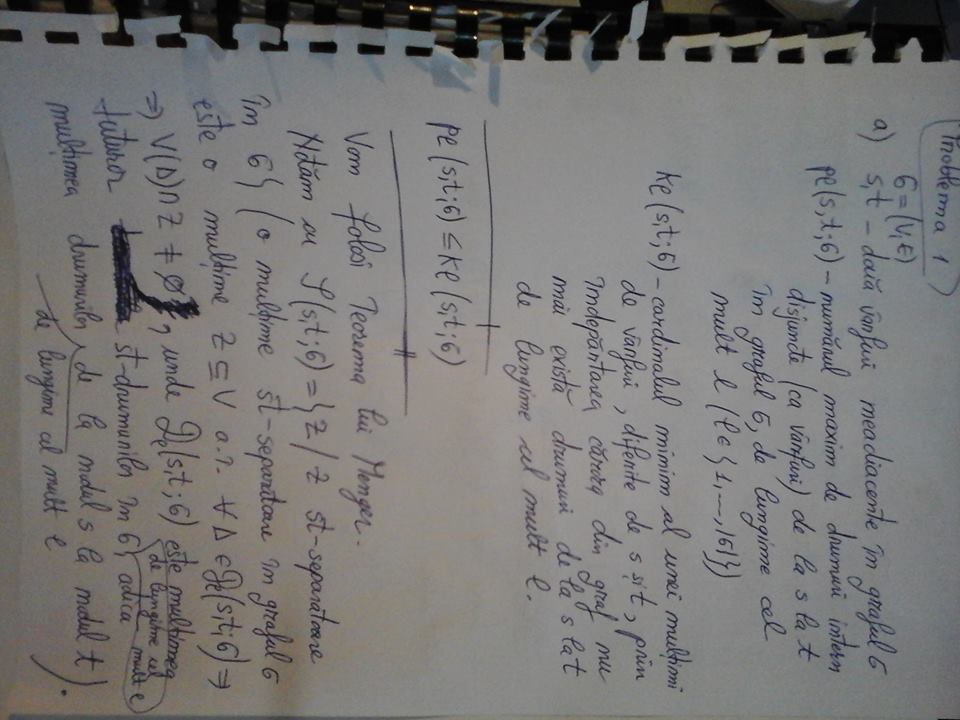 Problema 1
G=(V,E)
a) s,t – două vârfuri neadiacente în graful G
pℓ(s,t;G) – numărul maxim de drumuri intern
disjuncte (ca vârfuri) de la s la t
în graful G, de lungime cel
mult ℓ (ℓ∈{1,...,|G|})
kℓ(s,t;G) – cardinalul minim al unei mulțimi
de vârfuri, diferite de s și t, prin
îndepărtarea cărora din graf nu
mai există drumuri de la s la t
de lungime cel mult ℓ.
pℓ(s,t;G) ≤ kℓ(s,t;G)
Vom folosi Teorema lui Menger.
Notăm cu S(s,t;G) = {Z / Z st-separatoare
în G} (o mulțime st-separatoare în graful G
este o mulțime Z ⊆ V a.î. ∀ Δ ∈ Dℓ(s,t;G) ⇒
⇒ V(Δ)∩Z ≠ ∅, unde Dℓ(s,t;G) este mulțimea
de lungime cel mult ℓ
tuturor st-drumurilor în G, adică
mulțimea drumurilor de la nodul s la nodul t).
de lungime cel mult ℓ